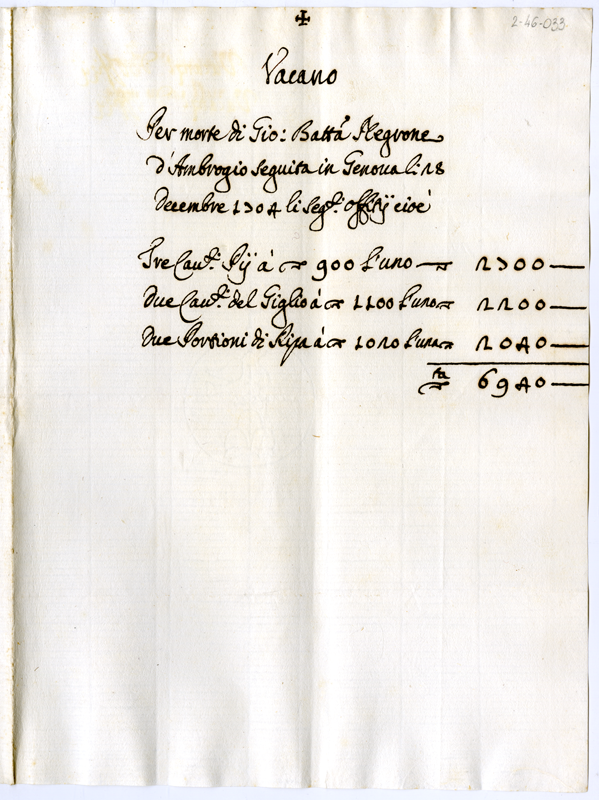 ✠
2-46-033
Vacano
Per morte di Gio: Batta Negrone
d'Ambrogio seguita in Genoua li 18
Decembre 1704 li seg.ti offitij cioè
Tre Cau.ti Pij à 900 l'uno — 2700 —
Due Cau.ti del Giglio à 1100 l'uno 2200 —
Due Portioni di Ripa à 1020 l'una 2040 —
6940 —